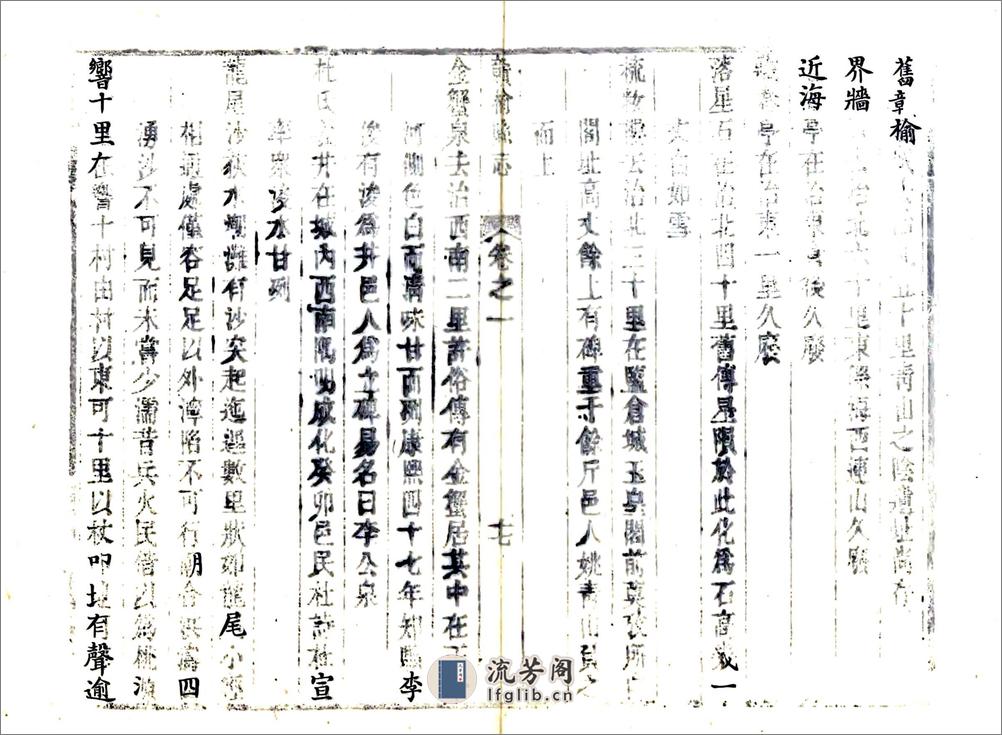 舊章榆五十里青山之陰遺址尚存
界牆治北六十里東際海西連山久廢
近海亭在治東後久廢
亭在治東一里久廢
落星石在治北四十里舊傳星隕於此化為石高丈一
丈白如雪
梳妝樓去治北三十里在鹽倉城玉皇閣前莫攷所
閣址高丈餘上有碑重千餘斤邑人姚青山負之
而上
贛榆縣志
卷之一
七
金蟹泉去治西南二里許俗傳有金蟹居其中在
河側色白而濁味甘而冽康熙四十七年知縣李
俊有浚為井邑人為立碑易名曰李公泉
杜氏井在城內西南隅明成化癸卯邑民杜詩杜宣
率眾浚水甘冽
龍尾沙荻水潮灘有沙突起迤邐數里狀如龍尾小徑
相通處僅容足足以外淖陷不可行潮合洪濤四
湧沙不可見而水嘗少濡昔兵火民借以為桃源
響十里在響十村由村以東可十里以杖叩地有聲逾
流芳阁
lfglib.cn